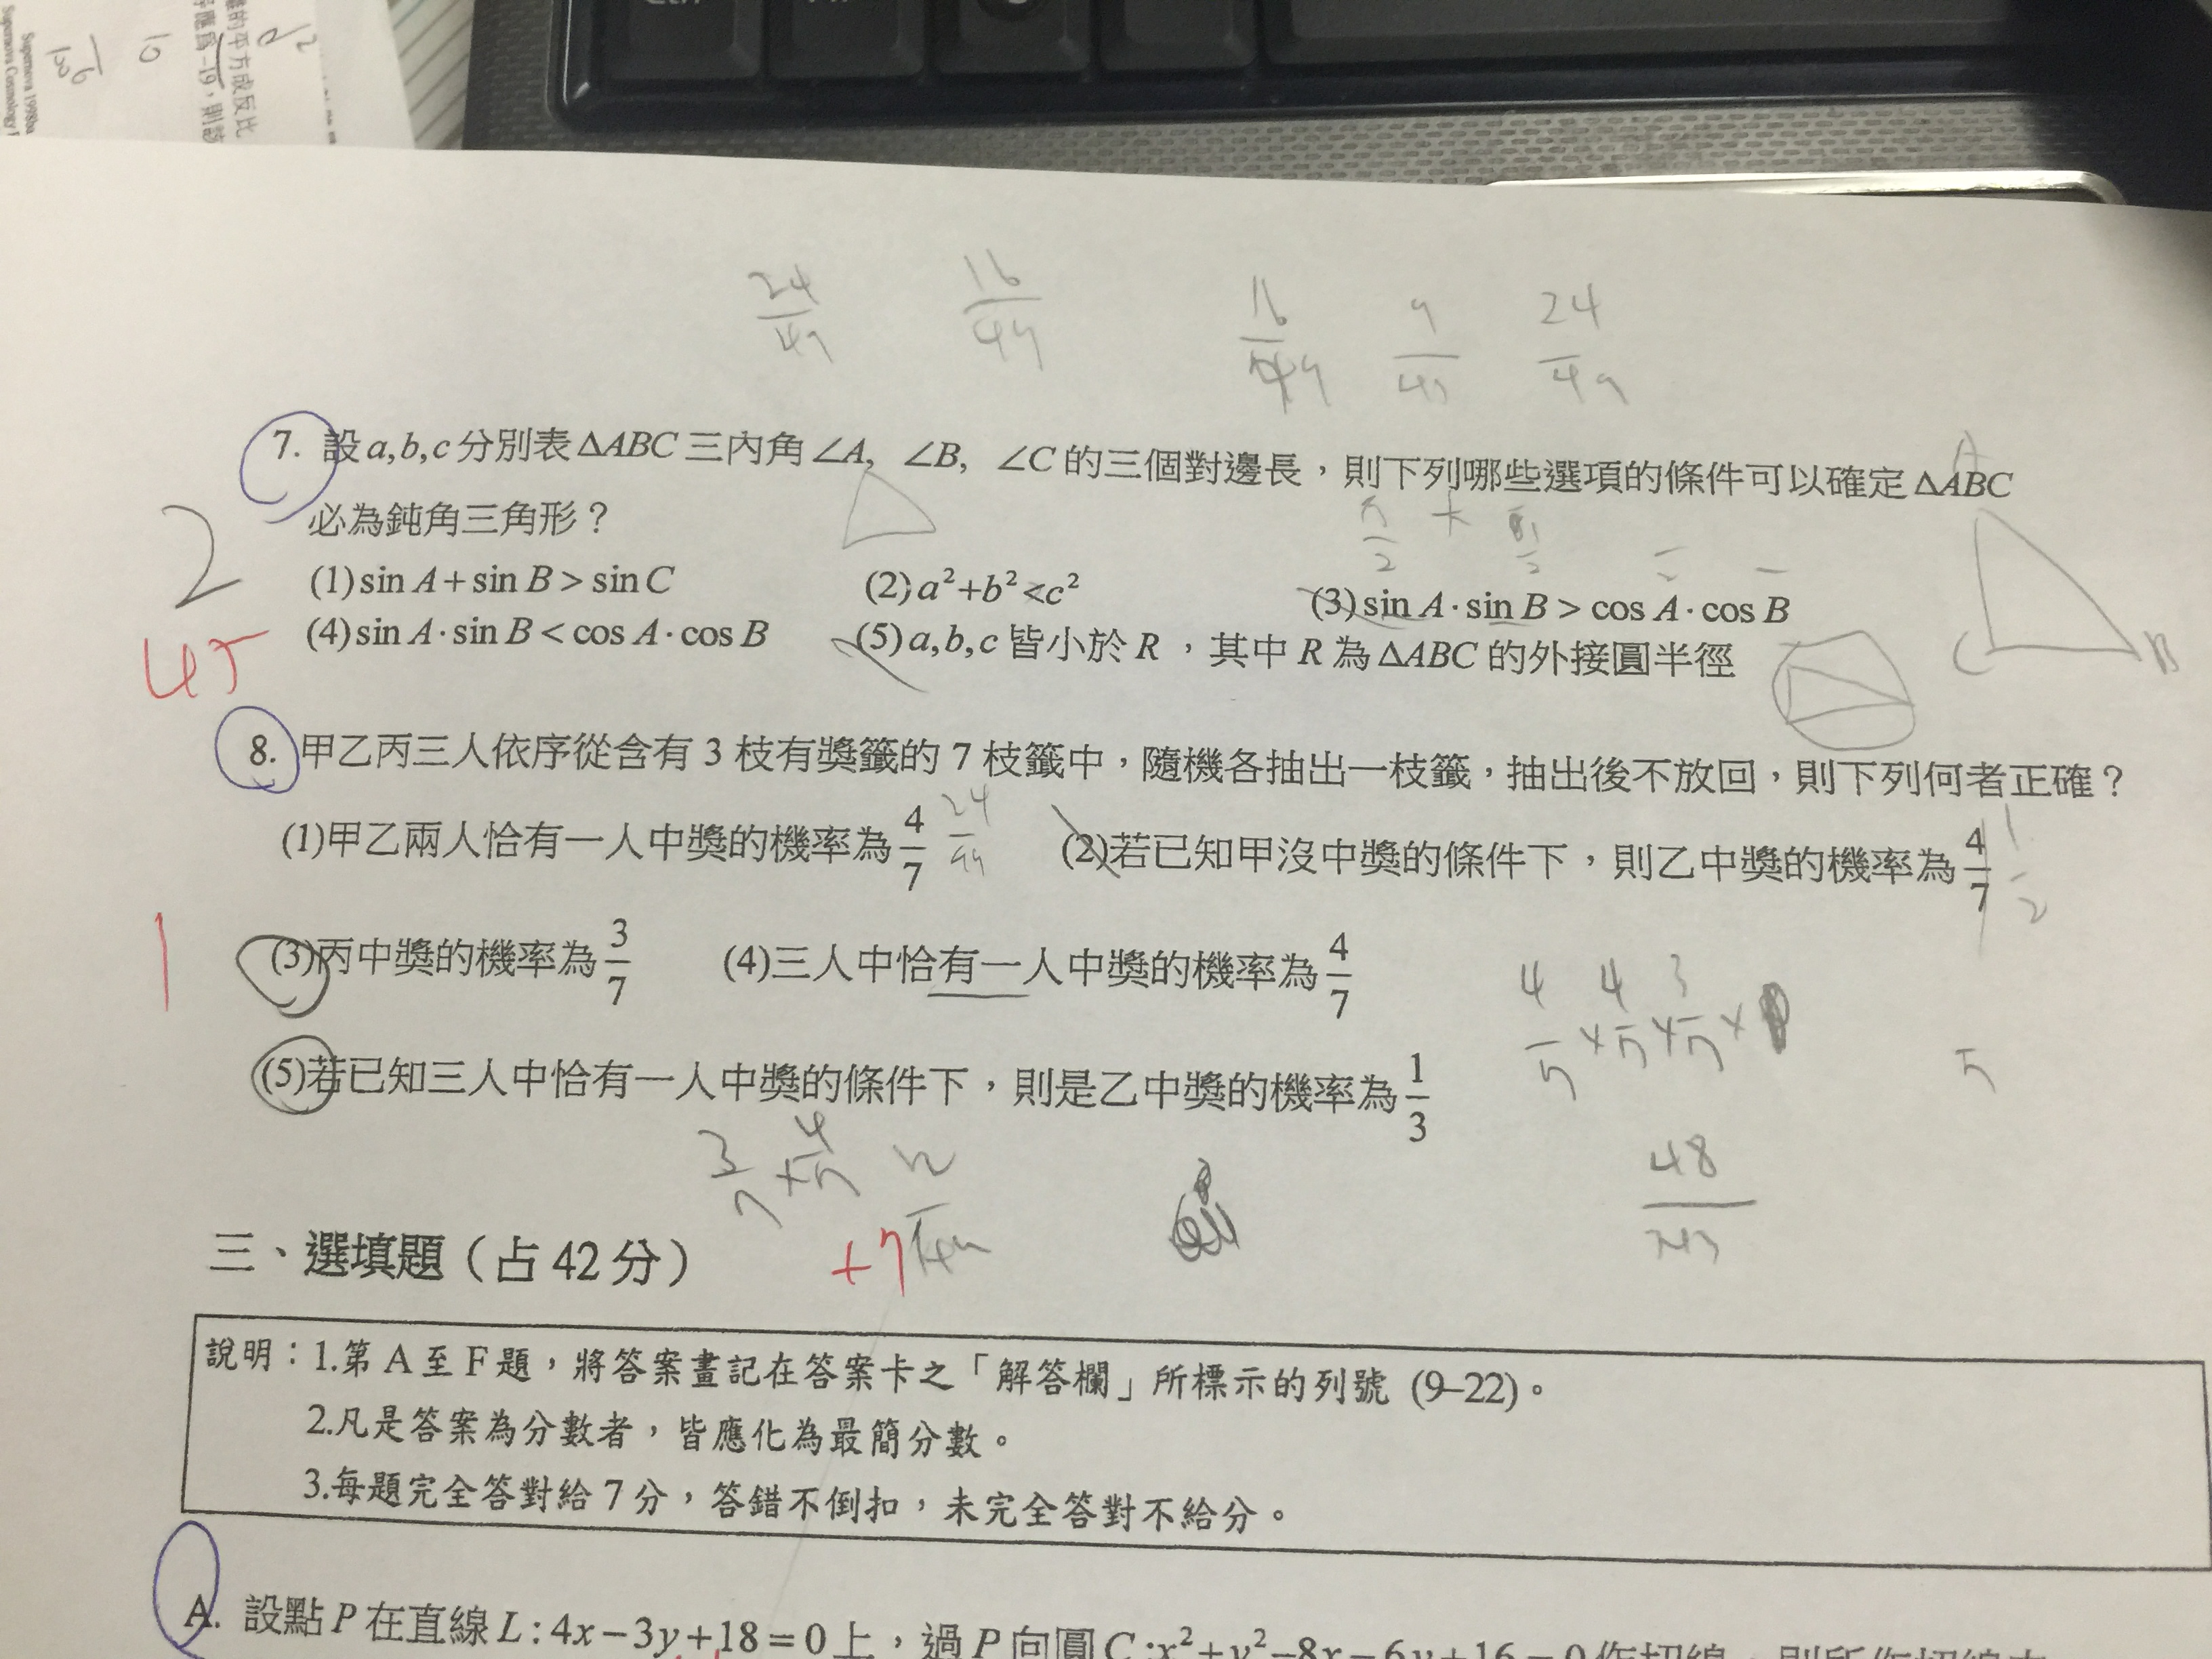 Supernova 1998ba
Supernova Cosmology
的平方成反比
-19,則
24/49 16/49 16/49 9/49 24/49
7. 設a,b,c分別表ΔABC三內角∠A, ∠B, ∠C的三個對邊長,則下列哪些選項的條件可以確定ΔABC
必為鈍角三角形?
(1)sin A+sin B>sin C (2)a²+b²<c² (3)sin A·sin B>cos A·cos B
(4)sin A·sin B<cos A·cos B (5)a,b,c皆小於R,其中R為ΔABC的外接圓半徑
2
45
A
C
B
8. 甲乙丙三人依序從含有3枝有獎籤的7枝籤中,隨機各抽出一枝籤,抽出後不放回,則下列何者正確?
(1)甲乙兩人恰有一人中獎的機率為4/7 24/49 (2)若已知甲沒中獎的條件下,則乙中獎的機率為4/7 1/2
1
(3)丙中獎的機率為3/7 (4)三人中恰有一人中獎的機率為4/7
(5)若已知三人中恰有一人中獎的條件下,則是乙中獎的機率為1/3
48
三、選填題(占42分) +7
說明:1.第A至F題,將答案畫記在答案卡之「解答欄」所標示的列號 (9–22)。
2.凡是答案為分數者,皆應化為最簡分數。
3.每題完全答對給7分,答錯不倒扣,未完全答對不給分。
A. 設點P在直線L:4x−3y+18=0上,過P向圓C:x²+y²−8x−6y+16=0作切線,則所作切線